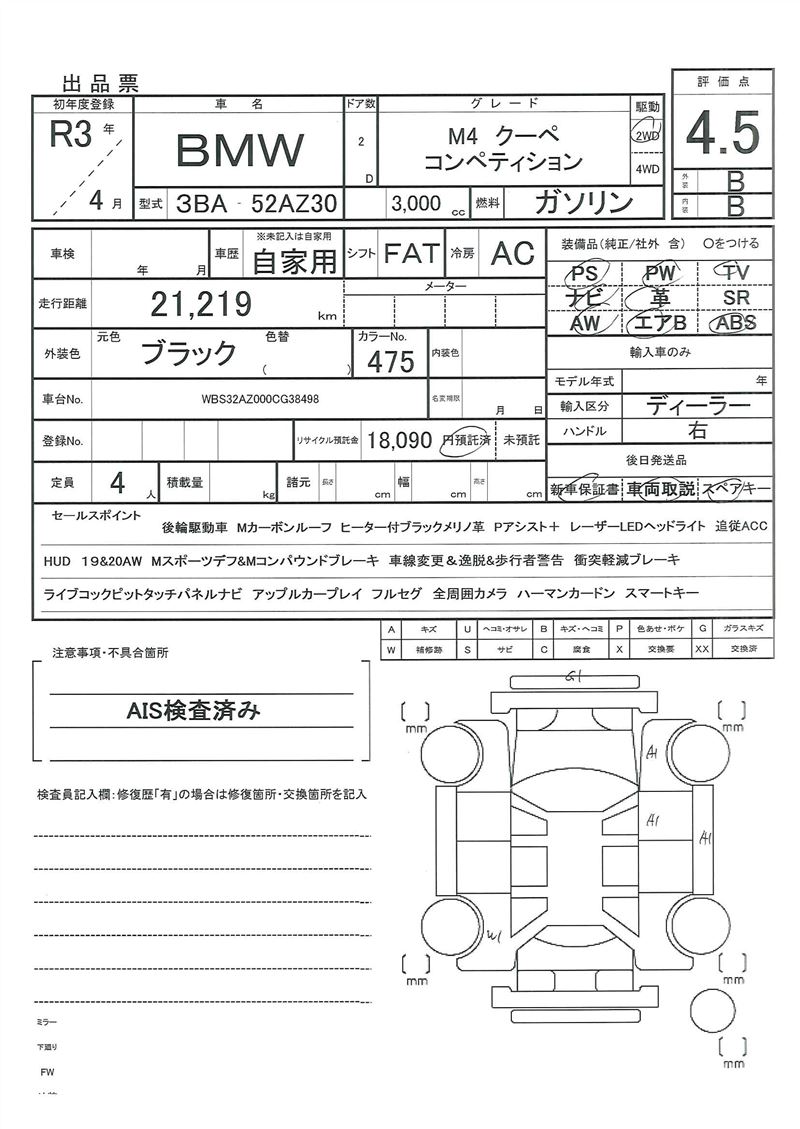 出品票
初年度登録 車名 ドア数 グレード 駆動 評価点
R3年 4月 BMW 2D M4 クーペ コンペティション 2WD 4WD 4.5
型式 3BA - 52AZ30 3,000cc 燃料 ガソリン
外装 B
内装 B
車検 年 月 車歴 ※未記入は自家用 自家用 シフト FAT 冷房 AC
走行距離 21,219 km メーター
外装色 元色 ブラック 色替 ( ) カラーNo. 475 内装色
車台No. WBS32AZ000CG38498 名変期限 月 日
登録No. リサイクル預託金 18,090 円預託済 未預託
定員 4人 積載量 kg 諸元 長さ cm 幅 cm 高さ cm
装備品(純正/社外 含) Oをつける
PS PW TV
ナビ 革 SR
AW エアB ABS
輸入車のみ
モデル年式 年
輸入区分 ディーラー
ハンドル 右
後日発送品
新車保証書 車両取説 スペアキー
セールスポイント
後輪駆動車 Mカーボンルーフ ヒーター付ブラックメリノ革 Pアシスト+ レーザーLEDヘッドライト 追従ACC
HUD 19&20AW Mスポーツデフ&Mコンパウンドブレーキ 車線変更&逸脱&歩行者警告 衝突軽減ブレーキ
ライブコックピットタッチパネルナビ アップルカープレイ フルセグ 全周囲カメラ ハーマンカードン スマートキー
A キズ U ヘコミ・オサレ B キズ・ヘコミ P 色あせ・ボケ G ガラスキズ
W 補修跡 S サビ C 腐食 X 交換要 XX 交換済
注意事項・不具合箇所
AIS検査済み
検査員記入欄:修復歴「有」の場合は修復箇所・交換箇所を記入
G1
[ ] mm
[ ] mm
A1
A1
A1
W1
[ ] mm
[ ] mm
[ ] mm
ミラー
下廻り
FW